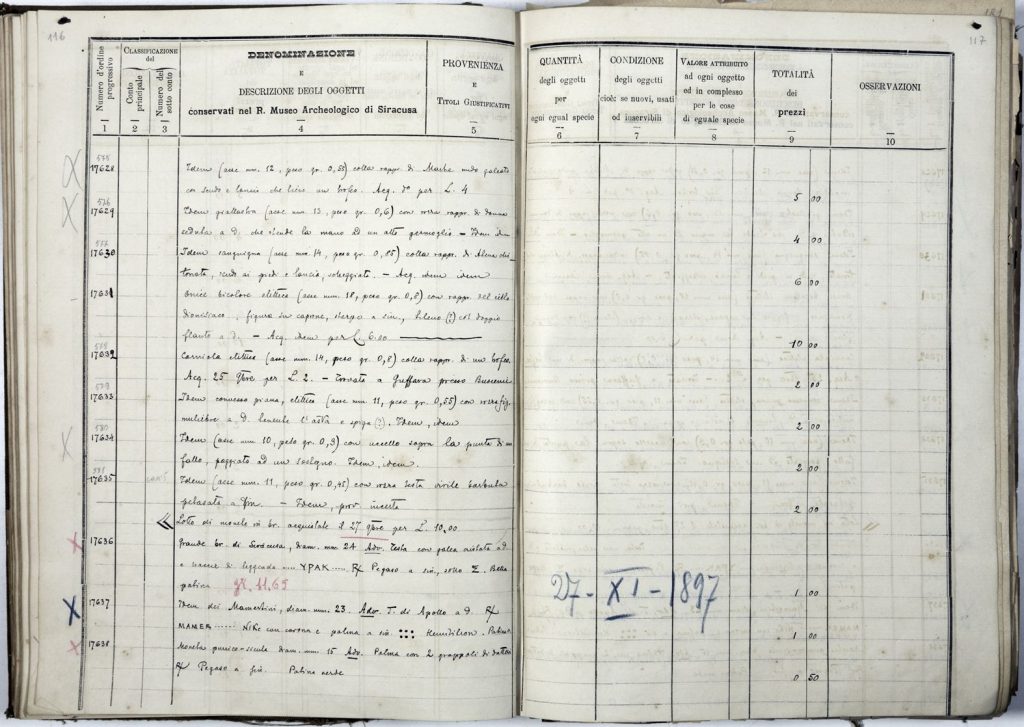 116
Numero d'ordine progressivo
1
CLASSIFICAZIONE del
Conto principale
2
Numero del sotto conto
3
DENOMINAZIONE
E
DESCRIZIONE DEGLI OGGETTI
conservati nel R. Museo Archeologico di Siracusa
4
PROVENIENZA
E
TITOLI GIUSTIFICATIVI
5
17628 Idem (asse mm. 12, peso gr. 0,55) colla rappr. di Marte nudo galeato
con scudo e lancia che un trofeo. Acq. per L. 4
17629 Idem (asse mm. 13, peso gr. 0,6) con rappr. di donna
seduta a d. che stende la mano ad un alto germoglio — Idem idem
17630 Idem sanguigna (asse mm. 14, peso gr. 0,85) colla rappr. di Atena
scudo ai piedi e lancia, . — Acq. idem idem
17631 Onice bicolore elittica (asse mm. 18, peso gr. 0,8) con rappr. del ciclo
dionisiaco; figura in capane, a sin., Sileno (?) col doppio
flauto a d. — Acq. idem per L. 6.00
17632 Corniola elittica (asse mm. 14, peso gr. 0,8) colla rappr. di un trofeo
Acq. 25 9bre per L. 2. — trovata a presso Buscemi
17633 Idem convesso piana, elittica (asse mm. 11, peso gr. 0,55) con fig.
muliebre a d. l'asta e spiga (?). Idem, idem
17634 Idem (asse mm. 10, peso gr. 0,3) con uccello sopra la punta di un
fallo, poggiato ad un sostegno. Idem, idem.
17635 Idem (asse mm. 11, peso gr. 0,45) con testa virile barbuta
petasata a sin. — Idem, prov. incerta
Lotto di monete in br. acquistate il 27 9bre per L. 10.00
17636 Grande br. di Siracusa, diam. mm 24 Adv. Testa con galea crestata a d.
e tracce di leggenda ΥΡΑΚ ..... R/ Pegaso a sin., sotto Σ. Bella
patina gr. 11,65
17637 Idem dei Mamertini, diam. mm. 23. Adv. T. di Apollo a d. R/
MAMER ...... Nike con corona e palma a sin. Hemilitrion. Patina
17638 Moneta punico-sicula diam. mm 15 Adv. Palma con 2 grappoli di datteri
R/ Pegaso a sin. Patina verde
117
QUANTITÀ
degli oggetti
per
ogni egual specie
6
CONDIZIONE
degli oggetti
cioè: se nuovi, usati
od inservibili
7
VALORE ATTRIBUITO
ad ogni oggetto
ed in complesso
per le cose
di eguale specie
8
TOTALITÀ
dei
prezzi
9
OSSERVAZIONI
10
5 00
4 00
6 00
10 00
2 00
2 00
2 00
2 00
27 - XI - 1897
1 00
1 00
0 50